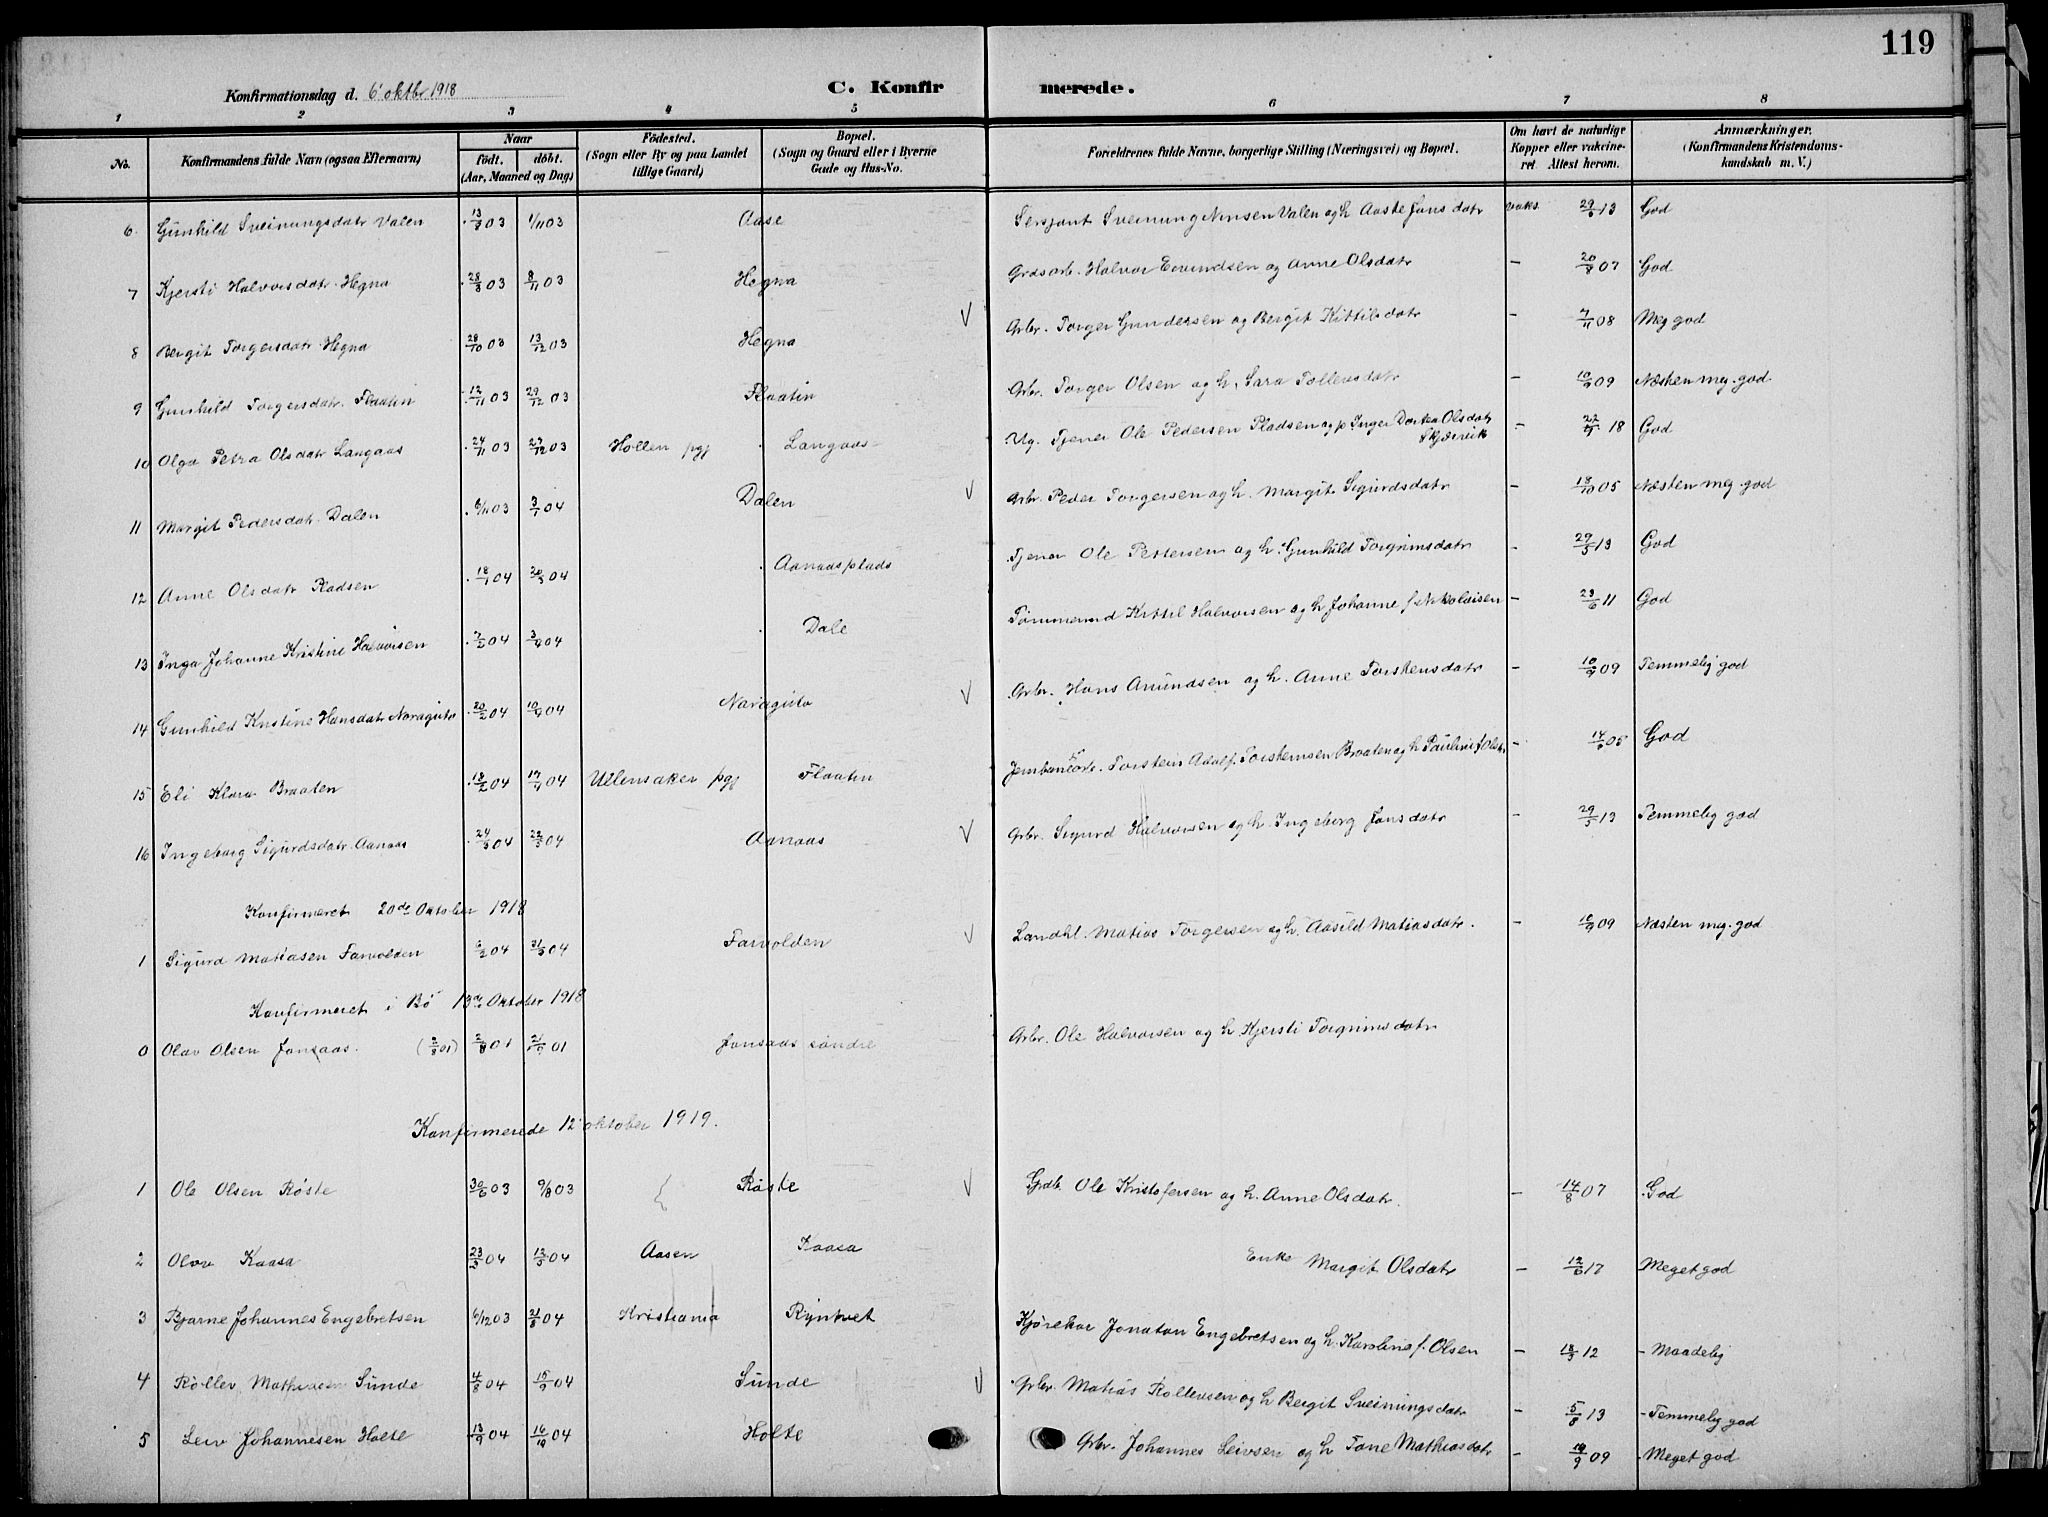 119
Konfirmationsdag d. 6' oktbr 1918 C. Konfirmerede.
1 2 3 4 5 6 7 8
No. Konfirmandens fulde Navn (ogsaa Efternavn) Naar født. døbt. (Aar, Maaned og Dag) Fødested. (Sogn eller By og paa Landet tillige Gaard) Bopæl. (Sogn og Gaard eller i Byerne Gade og Hus-No. Forældrenes fulde Navne, borgerlige Stilling (Næringsvei) og Bopæl. Om havt de naturlige Kopper eller vaksineret. Attest herom. Anmærkninger. (Konfirmandens Kristendomskundskab m. V.)
6. Gunhild Sveinungsdatr Valen 13/8 03 1/11 03 Aase Sersjant Sveinung Nensen Valen og h. Aaste Jonsdatr vaks. 13 God
7 Kjersti Halvorsdatr Hegna 28/8 03 8/11 03 Hegna Halvor Evensdsen og Anne Olsdatr - 20/8 07 God
8 Bergit Torgersdatr Hegna 28/10 03 13/12 03 Hegna V Grbr. Torger Gundersen og Bergit Kittilsdatr - 7/11 08 Meg god
9 Gunhild Torgersdatr. Flaatin 12/11 03 29/12 03 Flaatin Grbr. Torger Olsen og h. Sara Tollevsdatr - 10/9 09 Næsten meg. god
10 Olga Petra Olsdatr Langaas 24/11 03 27/12 03 Hollen pgj Langaas Ug. Tjener Ole Pedersen Pladsen og p Inger Dortea Olsdatr Skjærvik - 18 God
11 Margit Pedersdatr. Dalen 6/11 03 3/1 04 Dalen V Grbr. Peder Torgersen og h. Margit Sigurdsdatr - 18/10 05 Næsten meg. god
12 Anne Olsdatr Pladsen 18/1 04 20/3 04 Aanaasplads Tjener Ole Pettersen og h. Gunhild Torgrimsdatr - 29/5 13 God
13 Inga Johanne Kristine Halvorsen 7/2 04 3/4 04 Dale Tømmermd Kittil Halvorsen og h Johanne f. Nikolaisen - 23/6 11 God
14 Gunhild Kristine Hansdatr Noraguto 20/2 04 10/4 04 Noraguto V Grbr. Hans Amundsen og h. Anne Torstensdatr - 10/9 09 Temmelig god
15 Eli Klara Braaten 18/2 04 17/4 04 Ullensaker pgj Flaatin Jernbanearb. Torstein Adolf Torstensen Braaten og h Pauline f Olsen - 05 God
16 Ingeborg Sigurdsdatr. Aanaas 24/3 04 22/5 04 Aanaas V Grbr. Sigurd Halvorsen og h. Ingeborg Jonsdatr - 29/5 13 Temmelig god
Konfirmeret 20de Oktober 1918
1 Sigurd Matiasen Farvolden 6/2 04 21/3 04 Farvolden V Landhl. Matias Torgersen og h. Aasild Matiasdatr. - 10/9 09 Næsten meg. god
Konfirmeret i Bø 13de Oktober 1918
0 Olav Olsen Jonsaas. (2/8 01) 2/8 01 21/9 01 Jonsaas søndre Grbr. Ole Halvorsen og h. Kjersti Torgrimsdatr
Konfirmerede 12' oktober 1919.
1 Ole Olsen Røste 30/6 03 9/8 03 Røste V Grdb. Ole Kristofersen og h. Anne Olsdatr. - 14/8 07 God
2 Olav Kaasa 23/3 04 12/5 04 Aasen Kaasa Enke Margit Olsdatr - 12/6 17 Meget god
3 Bjarne Johannes Engebretsen 6/12 03 21/8 04 Kristiania Rynkvet Kjørekar Jonatan Engebretsen og h. Karoline f. Olsen - 18/3 12 - Maadelig
4 Rollev Mathiasen Sunde 4/8 04 15/9 04 Sunde V Grbr. Matias Rollevsen og h Bergit Sveinungsdatr - 5/8 13 - Temmelig god
5 Leiv Johannesen Holte 13/9 04 16/10 04 Holte Grbr. Johannes Leivsen og h Tone Mathiasdatr - 10/9 09 - Meget god